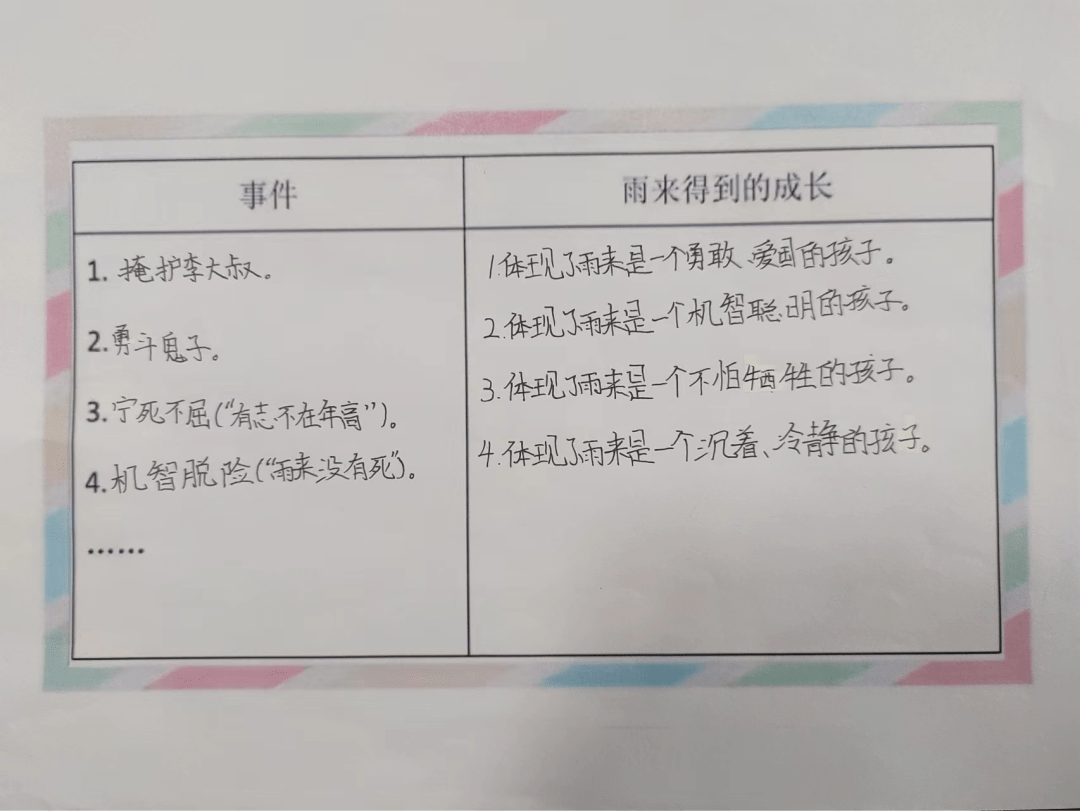 事件
雨来得到的成长
1. 掩护李大叔。
2.勇斗鬼子。
3.宁死不屈(“有志不在年高”)。
4.机智脱险(“雨来没有死”)。
……
1.体现了雨来是一个勇敢、爱国的孩子。
2.体现了雨来是一个机智聪明的孩子。
3.体现了雨来是一个不怕牺牲的孩子。
4.体现了雨来是一个沉着、冷静的孩子。